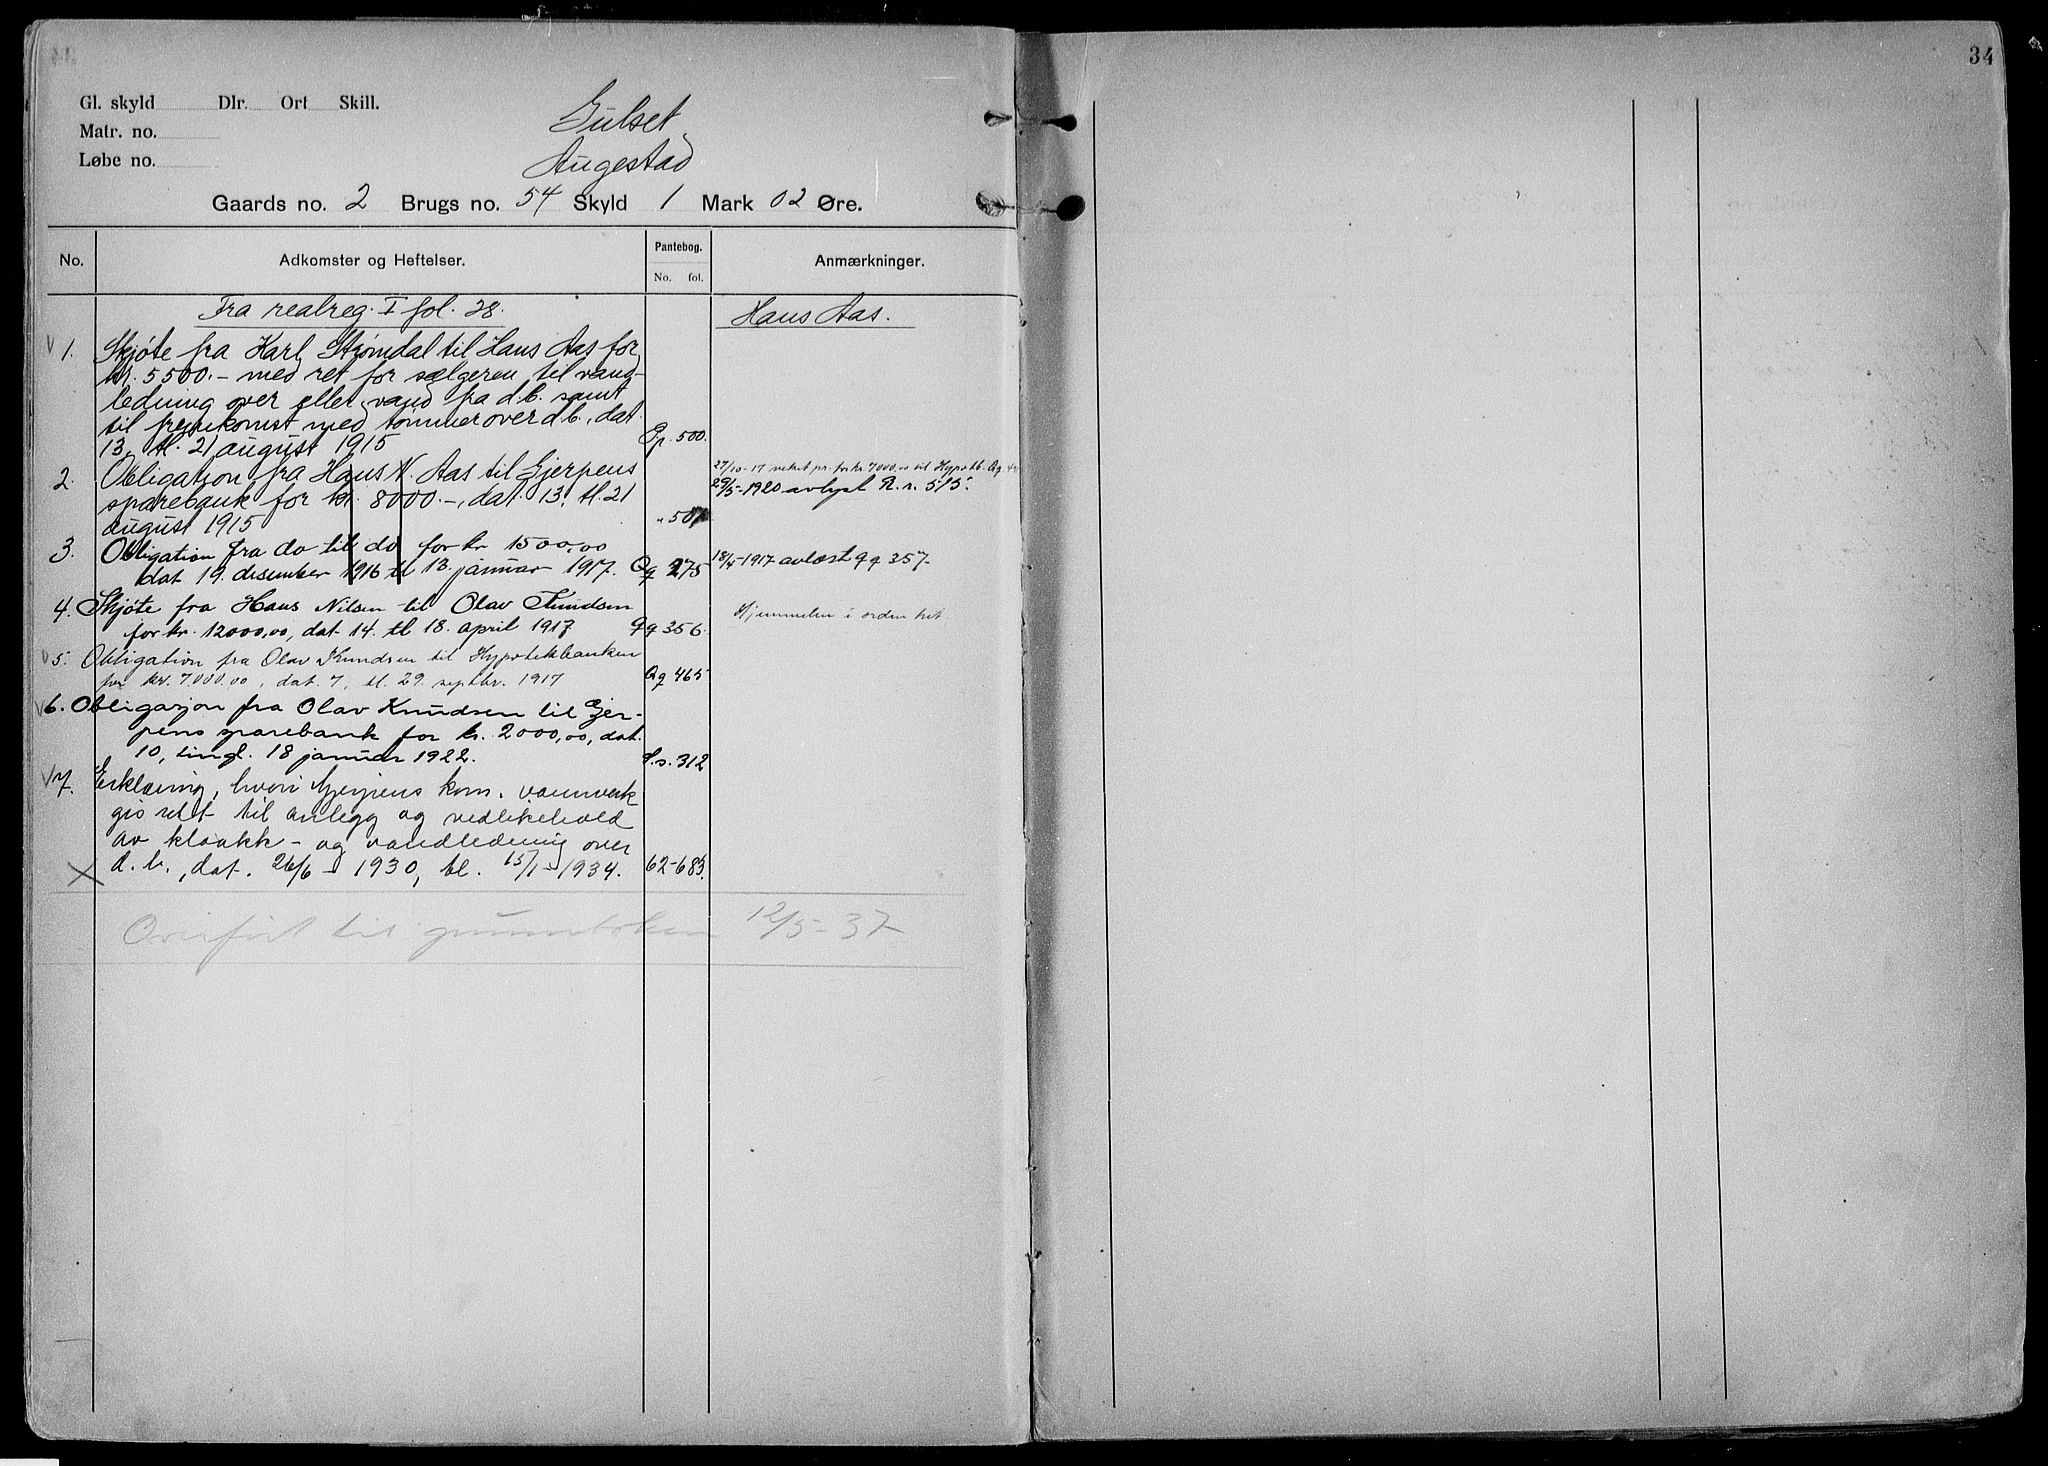 34
Gl. skyld Dlr. Ort Skill.
Matr. no.
Løbe no.
Gulset
Augestad
Gaards no. 2 Brugs no. 54 Skyld 1 Mark 02 Øre.
No. Adkomster og Heftelser. Pantebog. Anmærkninger.
No. fol.
Fra realreg. I fol. 28. Hans Aas.
1. Skjøte fra Karl Strømdal til Hans Aas for
kr. 5500.- med ret for sælgeren til vand-
ledning over eller vand fra d.b. samt
til fremkomst med tømmer over d.b., dat.
13, tl. 21 august 1915 Qp. 500.
2. Obligation fra Hans N. Aas til Gjerpens 27/10-17 veket pr. for kr. 7000,00 til Hypotb. Qq.
sparebank for kr. 8000.-, dat. 13, tl. 21 29/5-1920 avlyst R.r. 515.
august 1915 " 501
3. Obligation fra do til do for kr 1500,00
dat 19. desember 1916 tl 13. januar 1917. Qq 275 18/4-1917 avlæst Qq 357-
4. Skjøte fra Hans Nilsen til Olav Knudsen Hjemmelen i orden
for kr. 12000,00, dat 14. tl 18. april 1917 Qq 356.
5. Obligation fra Olav Knudsen til Hypotekbanken
for kr. 7.000,00, dat. 7, tl. 29. septbr. 1917 Qq 465
6. Obligasjon fra Olav Knudsen til Gjer-
pens sparebank for kr. 2000,00, dat.
10, tingl. 18 januar 1922. S.s. 312
7. Erklæring, hvori Gjerpens kom. vannverk
gis rett til anlegg og vedlikehold
av kloakk- og vandledning over
d. b., dat. 26/6 - 1930, tl. 15/1 - 1934. 62-683.
Overført til grunnboken 12/5-37-